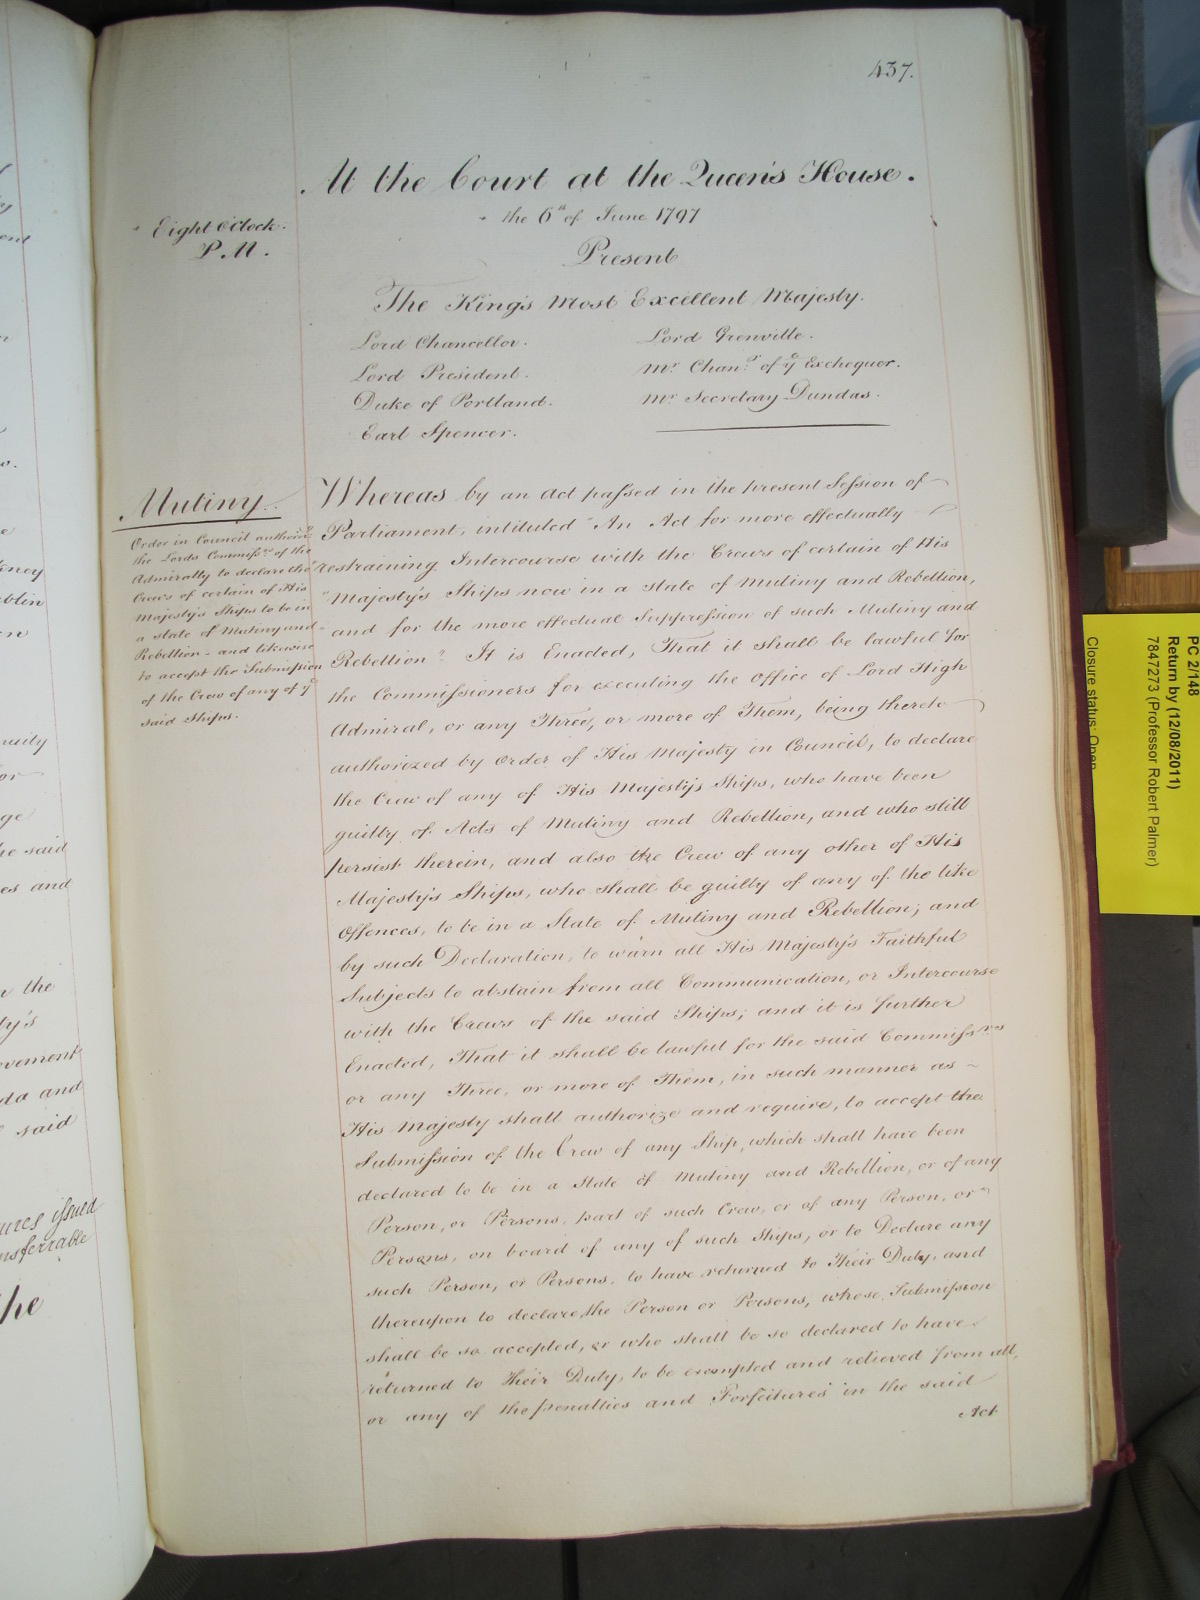 437.
At the Court at the Queen's House.
the 6th of June 1797
Eight o'Clock.
P.M.
Present
The King's Most Excellent Majesty.
Lord Chancellor.
Lord President.
Duke of Portland.
Earl Spencer.
Lord Grenville.
Mr. Chanr. of ye Exchequer.
Mr. Secretary Dundas.
Mutiny.
Order in Council authorizg
the Lords Commissrs of the
Admiralty to declare the
Crews of certain of His
Majesty's Ships to be in
a state of Mutiny and
Rebellion - and likewise
to accept the Submission
of the Crew of any of ye
said Ships.
Whereas by an Act passed in the present Session of
Parliament, intituled "An Act for more effectually
restraining Intercourse with the Crews of certain of His
"Majesty's Ships now in a state of Mutiny and Rebellion,
and for the more effectual Suppression of such Mutiny and
Rebellion" It is Enacted, That it shall be lawful for
the Commissioners for executing the Office of Lord High
Admiral, or any Three, or more of Them, being thereto
authorized by Order of His Majesty in Council, to declare
the Crew of any of His Majesty's Ships, who have been
guilty of Acts of Mutiny and Rebellion, and who still
persist therein, and also the Crew of any other of His
Majesty's Ships, who shall be guilty of any of the like
Offences, to be in a State of Mutiny and Rebellion; and
by such Declaration, to warn all His Majesty's Faithful
Subjects to abstain from all Communication, or Intercourse
with the Crews of the said Ships; and it is further
Enacted, That it shall be lawful for the said Commissrs
or any Three, or more of Them, in such manner as
His Majesty shall authorize and require, to accept the
Submission of the Crew of any Ship, which shall have been
declared to be in a State of Mutiny and Rebellion, or of any
Person, or Persons, part of such Crew, or of any Person, or
Persons, on board of any of such Ships, or to Declare any
such Person, or Persons, to have returned to Their Duty, and
thereupon to declare, the Person or Persons, whose Submission
shall be so accepted, or who shall be so declared to have
returned to Their Duty, to be exempted and relieved from all,
or any of the penalties and Forfeitures in the said
Act
PC 2/148
Return by (12/08/2011)
7847273 (Professor Robert Palmer)
Closure status: Open